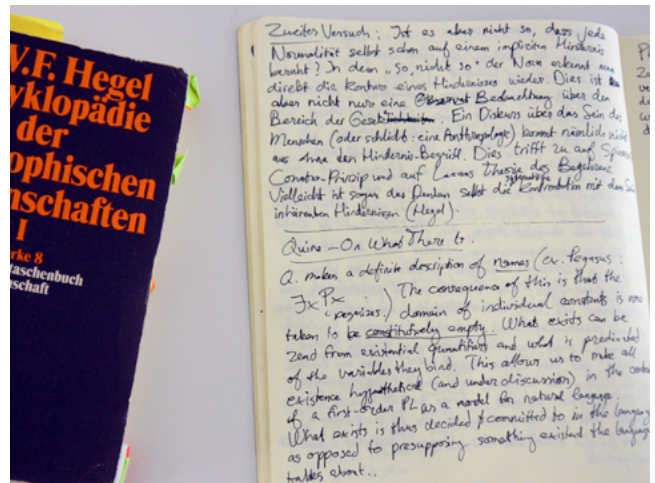 V.F. Hegel
yklopädie
der
ophischen
nschaften
I
erke 8
taschenbuch
schaft
Zweiter Versuch: Ist es aber nicht so, dass jede
Normalität selbst schon auf einem impliziten Hindernis
beruht? In dem "so, nicht so" der Norm erkennt man
direkt die Kontur eines Hindernisses wieder. Dies ist
aber nicht nur eine Beobachtung über den
Bereich der Ein Diskurs über das Sein des
Menschen (oder schlicht: eine Anthropologie) kommt nämlich nicht
aus ohne den Hindernis-Begriff. Dies trifft zu auf
Conatus-Prinzip und auf Lacans Theorie des Begehrens.
Vielleicht ist sogar das Denken selbst die Konfrontation mit
inhärenten Hindernissen (Hegel).
Quine - On What There Is.
Q. makes a definite description of names (ex. Pegasus:
∃x Px (pegasizes.) The consequence of this is that the
domain of individual constants is now
taken to be constitutively empty. What exists can be
read from existential quantifiers and what is predicated
of the variables they bind. This allows us to make all
existence hypothetical (and under discussion) in the
of a first-order PL as a model for natural language.
What exists is thus decided & committed to in the language
as opposed to presupposing something existent the language
talks about..